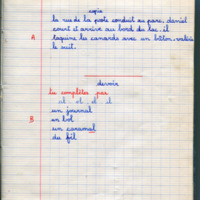 copie
la rue de la poste conduit au parc. daniel
A court et arrive au bord du lac. il
taquine les canards avec un bâton. valérie
le suit.
devoir
tu complètes par
al ol el il
B un journal
un bol
un caramel
du fil